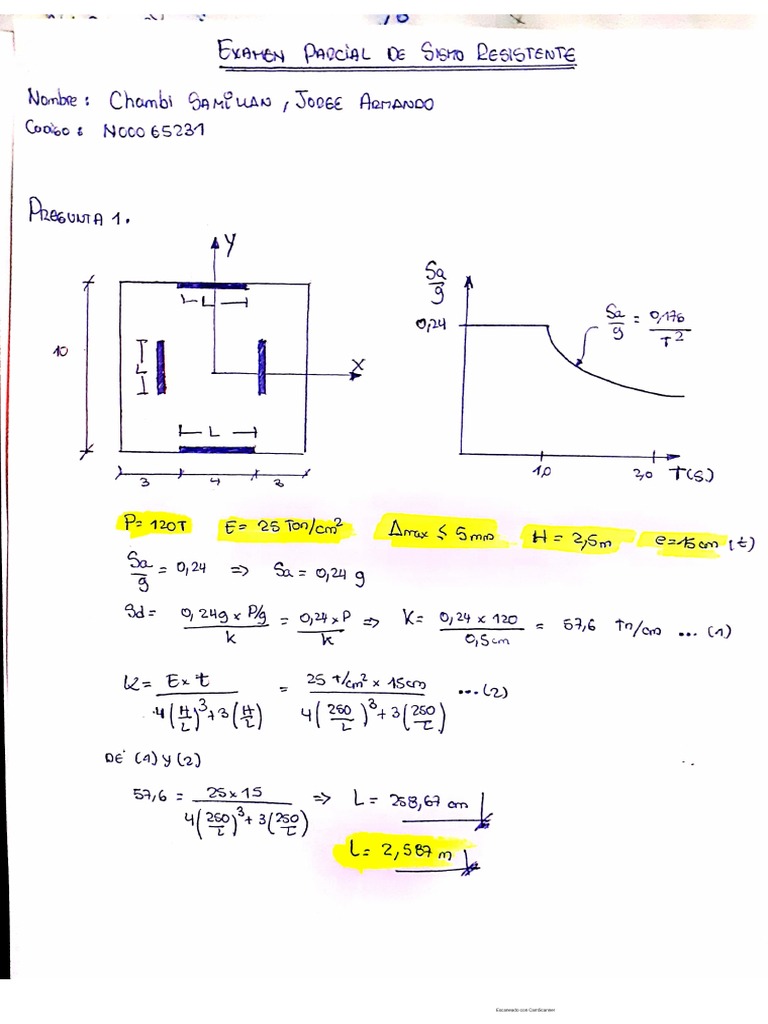 EXAMEN PARCIAL DE SISMO RESISTENTE
Nombre: Chambi SAMILLAN, JORGE ARMANDO
CODIGO: N00065231
PREGUNTA 1.
Y
L
10
L
X
L
3 4 3
Sa/g
0,24
Sa/g = 0,176/T²
1,0 2,0 T(s)
P= 120T E= 25 Ton/cm² Δmax ≤ 5mm H= 2,5m e=15cm (t)
Sa/g = 0,24 => Sa = 0,24 g
Sd= 0,24g x P/g / K = 0,24 x P / K => K= 0,24 x 120 / 0,5cm = 57,6 Tn/cm ... (1)
K= E x t / 4(H/L)³+3(H/L) = 25 T/cm² x 15cm / 4(250/L)³+3(250/L) ...(2)
DE (1) y (2)
57,6 = 25x15 / 4(250/L)³+3(250/L) => L= 258,67 cm
L= 2,587 m
Escaneado con CamScanner